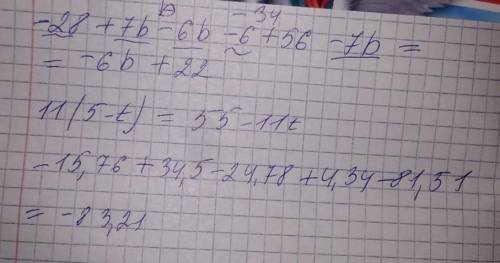 -34
-28 + 7b - 6b - 6 + 56 - 7b =
= -6b + 22
11(5-t) = 55-11t
-15,76 + 34,5 - 24,78 + 4,34 - 81,51
= -83,21